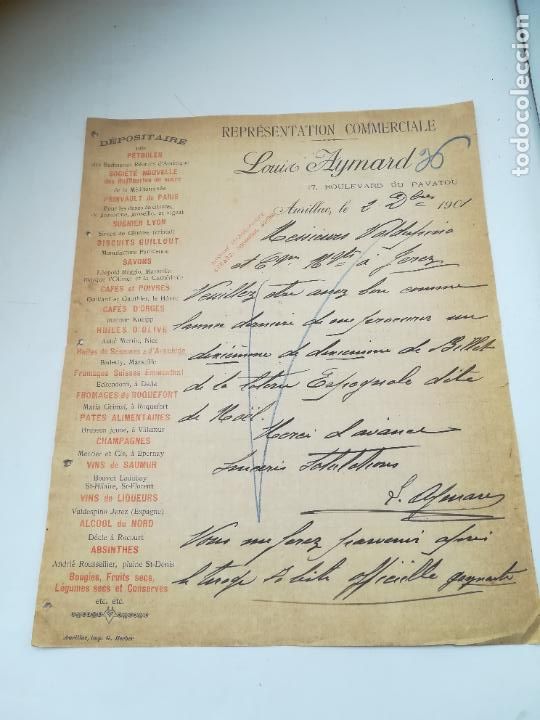 REPRÉSENTATION COMMERCIALE
Louis Aymard 26
17, BOULEVARD DU PAVATOU
Aurillac, le 2 Xbre 1901
DÉPOSITAIRE
PÉTROLES
SOCIÉTÉ NOUVELLE
des Raffineries de sucre
de la Méditerranée
PRINVAULT de PARIS
SUGNIER LYON
BISCUITS GUILLOUT
Manufacture Parisienne
SAVONS
CAFÉS et POIVRES
CAFÉS D'ORGES
HUILES D'OLIVE
Huiles de Sésames & d'Arachide
Fromages Suisses Emmenthal
FROMAGES de ROQUEFORT
Maria Grimal, à Roquefort
PATES ALIMENTAIRES
Brusson jeune, à Villemur
CHAMPAGNES
Mercier et Cie, à Épernay
VINS de SAUMUR
Bouvet Ladubay
St-Hilaire, St-Florent
VINS de LIQUEURS
Valdespino Jerez (Espagne)
ALCOOL du NORD
Dècle à Rocourt
ABSINTHES
André Roussellier, plaine St-Denis
Bougies, Fruits secs,
Légumes secs et Conserves
etc. etc.
Messieurs Valdespino
et Cie à Jerez
Veuillez être assez bon comme
l'année dernière de me procurer un
dixième de dixième de Billet
de la loterie Espagnole dite
de Noël.
Merci d'avance
Sincères Salutations
L. Aymard
Vous me ferez parvenir après
le tirage la liste officielle gagnante
Aurillac, imp.
todocoleccion